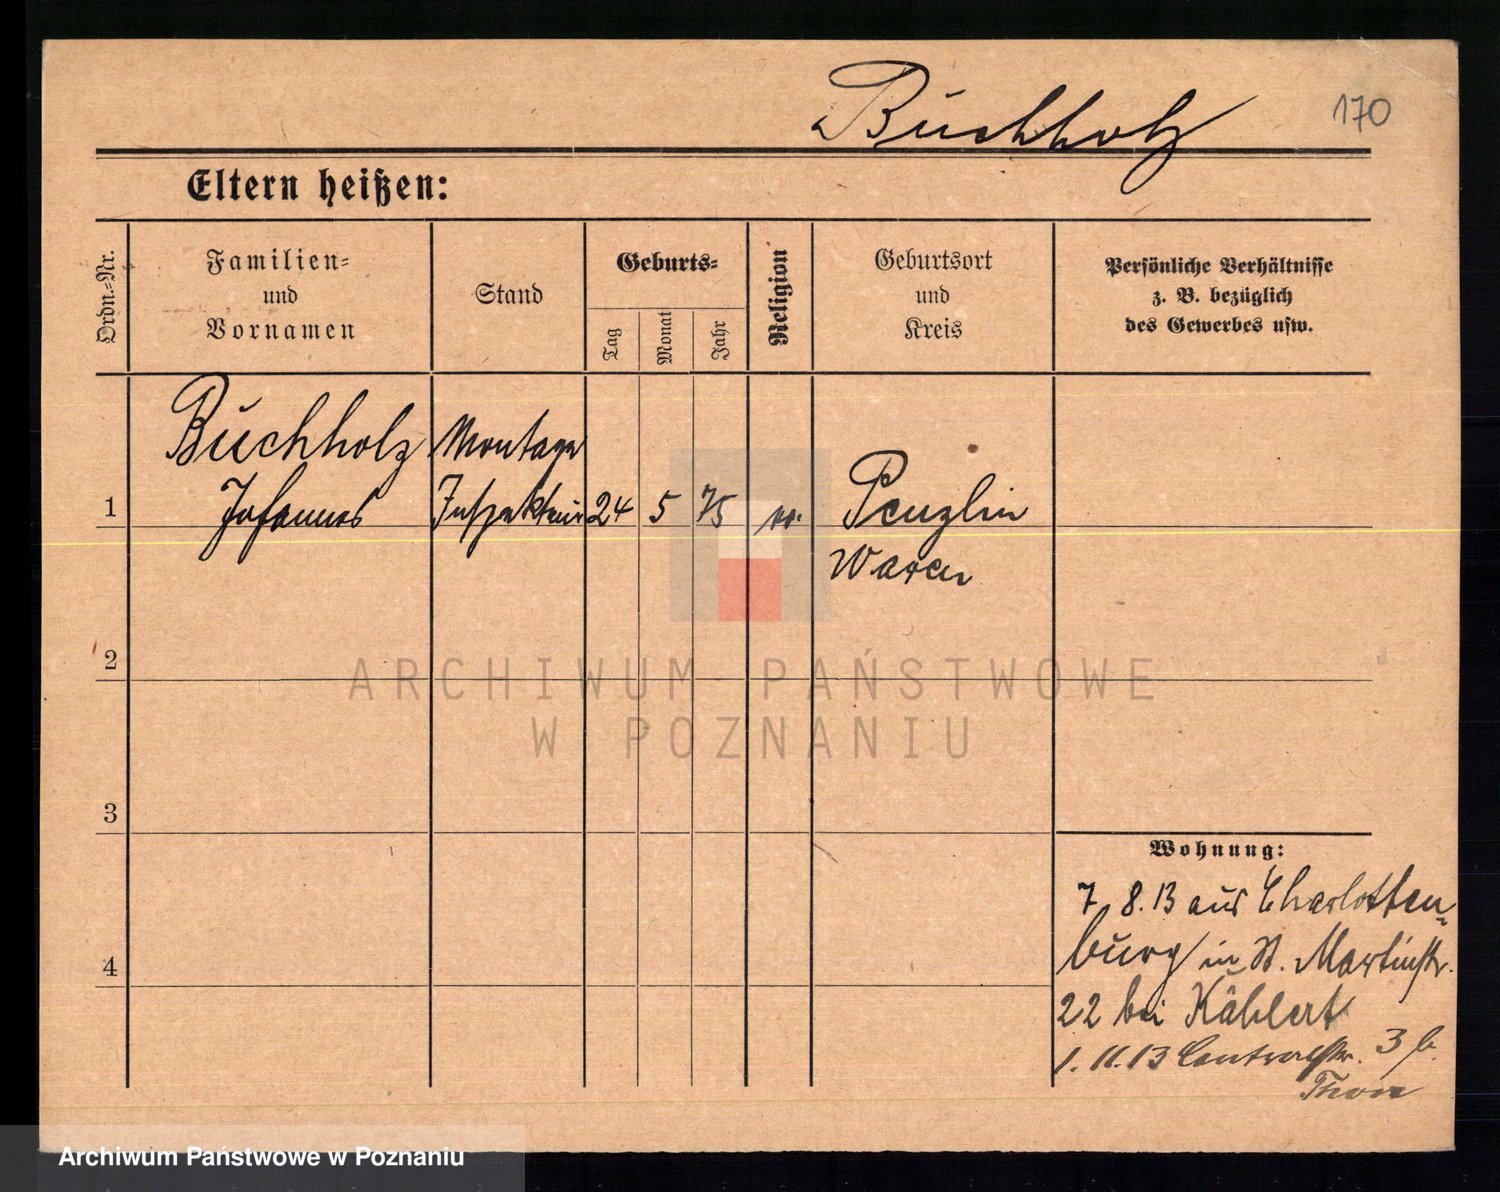 Buchholz
170
Eltern heißen:
Ordn.-Nr.
Familien-
und
Vornamen
Stand
Geburts-
Tag
Monat
Jahr
Religion
Geburtsort
und
Kreis
Persönliche Verhältnisse
z. B. bezüglich
des Gewerbes usw.
Buchholz Montage
1 Johannes Inspekteur 24 5 75 Penzlin
Waren
2
ARCHIWUM PAŃSTWOWE
W POZNANIU
3
Wohnung:
7. 8. 13 aus Charlotten-
burg in St. Martinstr.
4
22 bei Kählert
1. 11. 13 Centralstr. 3 b.
Archiwum Państwowe w Poznaniu